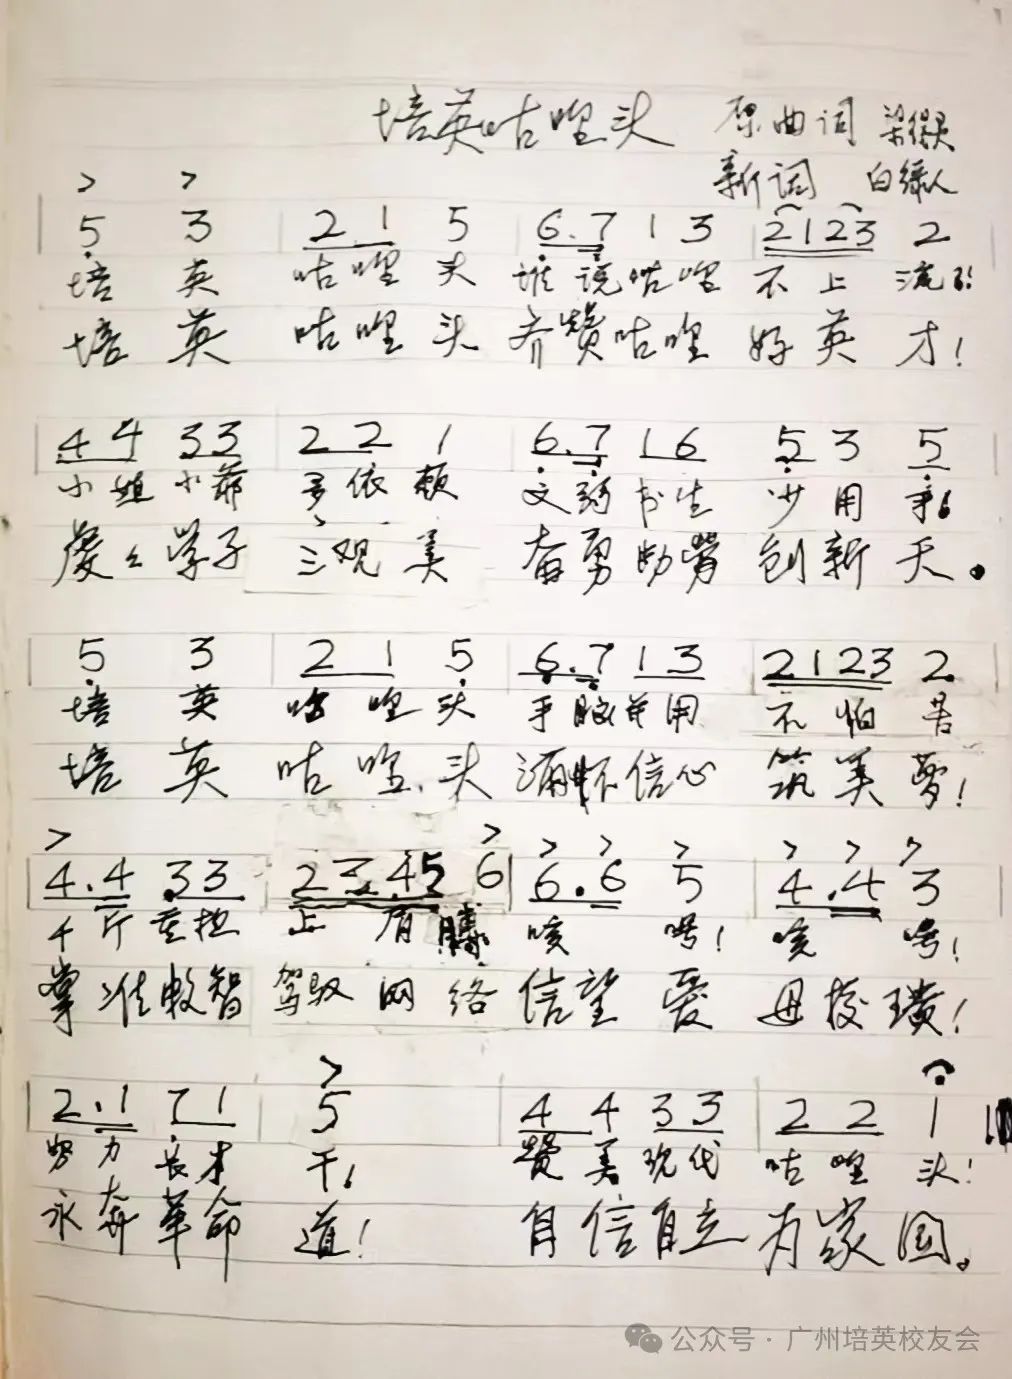 培英咕喱头 原曲词
新词 白绿人
5 3 2 1 5 6.7 1 3 2123 2
培 英 咕喱 头 谁说咕喱 不 上 流!
培 英 咕喱 头 齐赞咕喱 好 英 才!
4 4 33 2 2 1 6.7 1 6 5 3 5
小姐小爷 多依赖 文弱书生 少用手
莘々学子 三观美 奋勇勤劳 创新天。
5 3 2 1 5 6.7 1 3 2123 2
培 英 咕喱 头 手脑并用 不怕苦
培 英 咕喱 头 满怀信心 筑美梦!
4.4 33 2345 6 6.6 5 4.4 3
千斤重担 上肩膊 咳 号! 咳 号!
掌准数智 驾驭网络 信望爱 母校瑰!
2.1 7 1 5 4 4 3 3 2 2 1
努力 长才 干! 赞美现代 咕喱 头!
永奔革命 道! 自信自立 为家国。
公众号·广州培英校友会